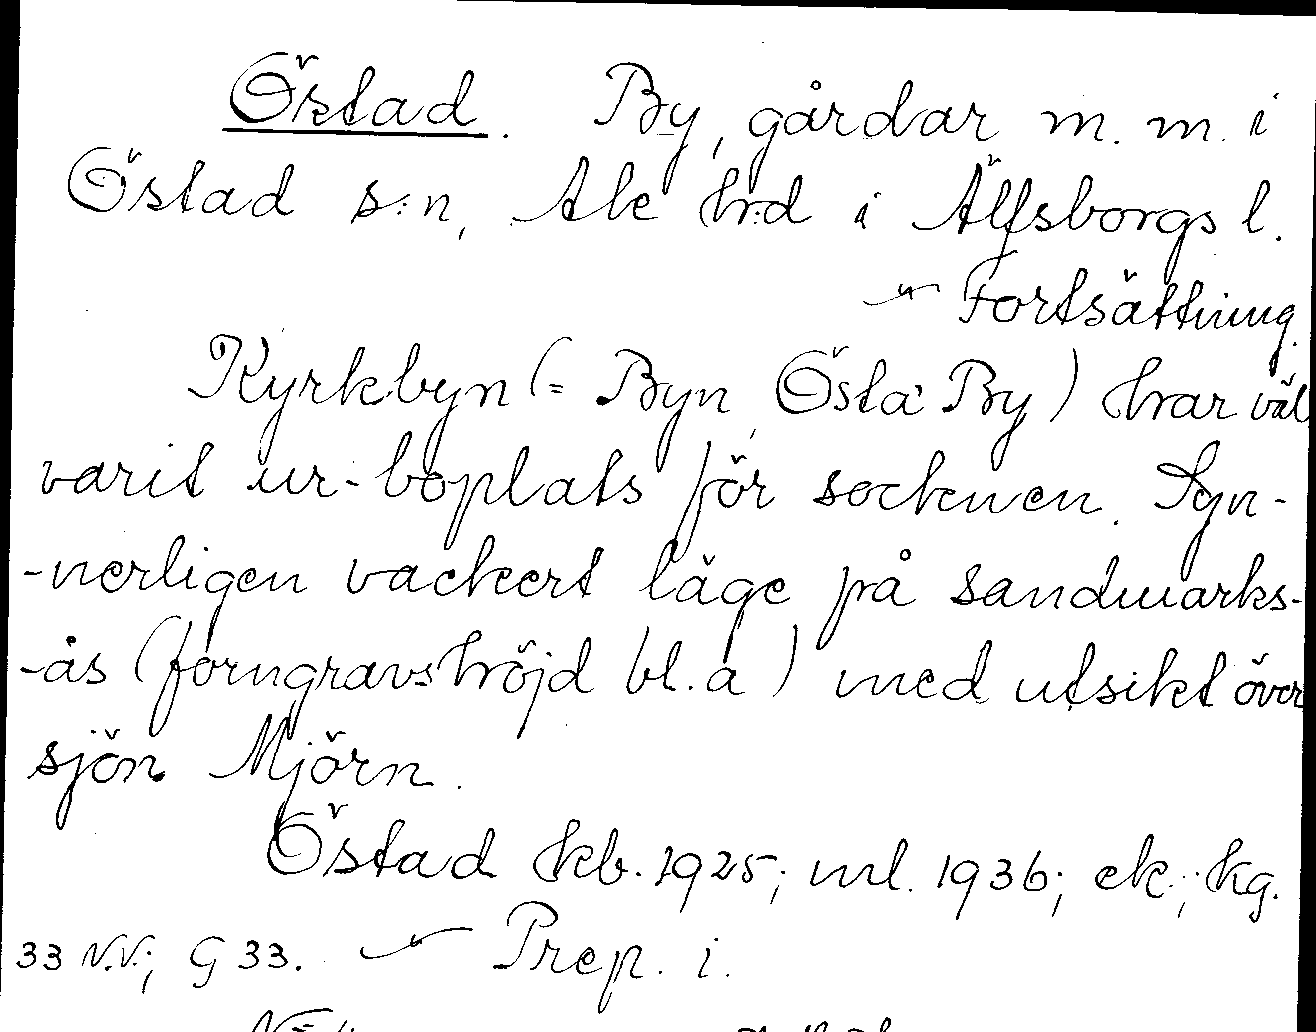 Östad. By, gårdar m. m. i
Östad s:n, Ale hrd i Älfsborgs l.
~ Fortsättning.
Kyrkbyn (= Byn, Östa By) har väl
varit ur-boplats för socknen. Syn-
-nerligen vackert läge på sandmarks-
-ås (forngravshöjd bl. a) med utsikt över
sjön Mjörn.
Östad kb. 1925; ml. 1936; ek.; kg.
33 N.V.; G 33. ~ Prep. i.